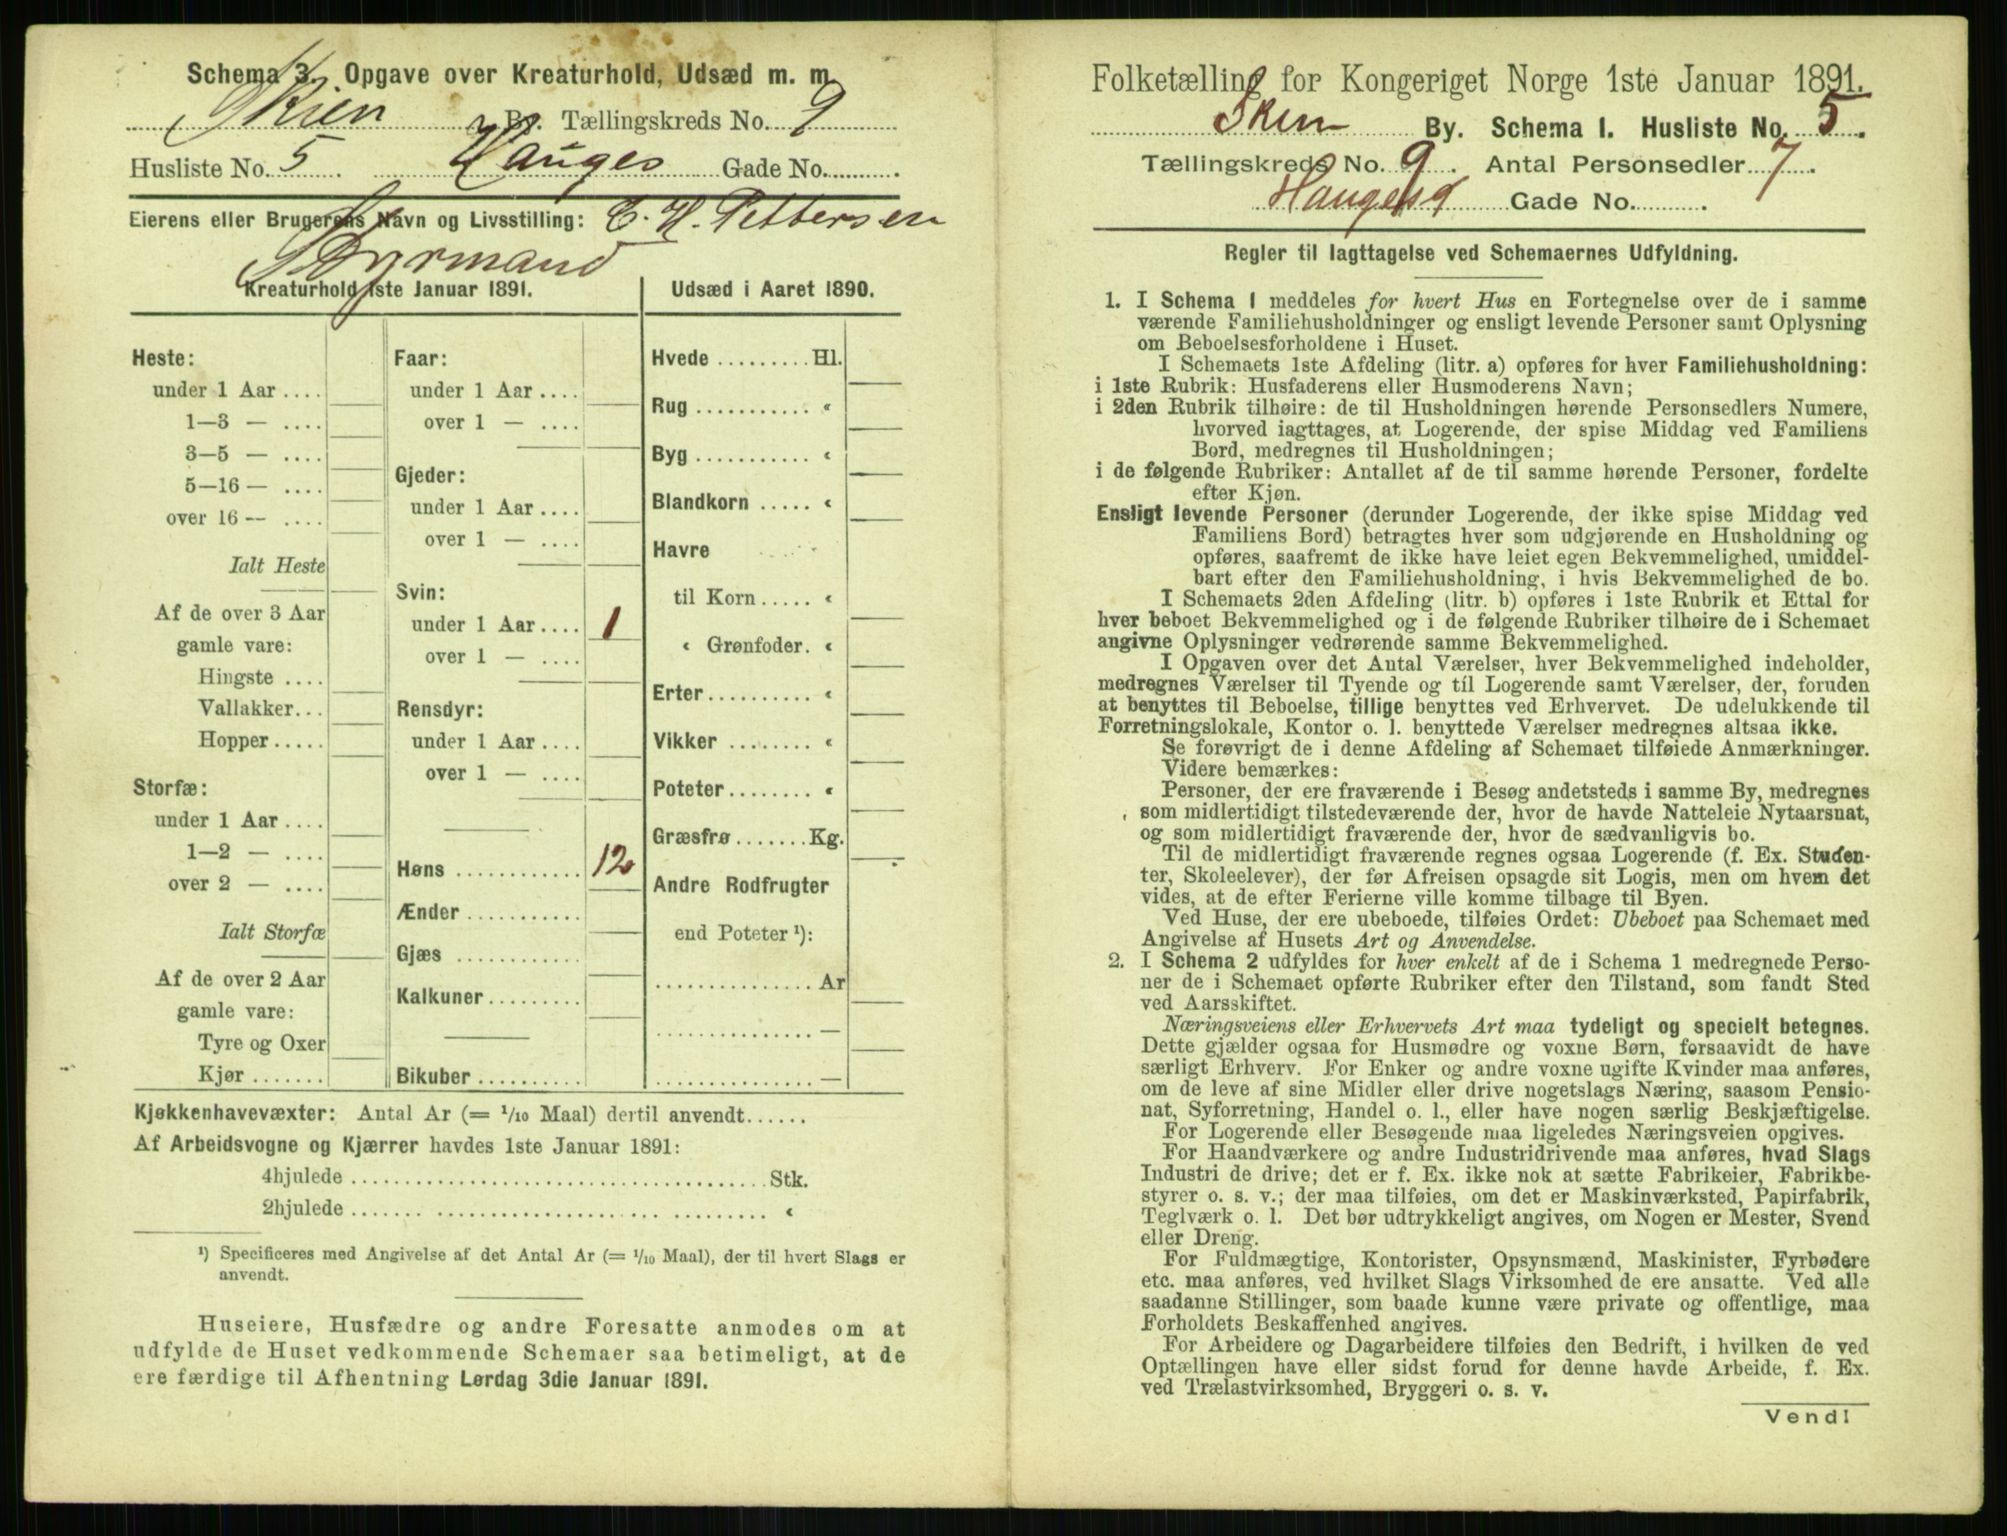 Schema 3. Opgave over Kreaturhold, Udsæd m. m.
Skien By. Tællingskreds No. 9
Husliste No. 5. Hauges Gade No.
Eierens eller Brugerens Navn og Livsstilling: C. H. Pettersen
Styrmand
Kreaturhold 1ste Januar 1891.
Heste:
under 1 Aar ....
1—3 — ....
3—5 — ....
5—16 — ....
over 16 — ....
Ialt Heste
Af de over 3 Aar
gamle vare:
Hingste ....
Vallakker...
Hopper.....
Storfæ:
under 1 Aar ....
1—2 — ....
over 2 — ....
Ialt Storfæ
Af de over 2 Aar
gamle vare:
Tyre og Oxer
Kjør .......
Faar:
under 1 Aar ....
over 1 — ....
Gjeder:
under 1 Aar ....
over 1 — ....
Svin:
under 1 Aar .... 1
over 1 — ....
Rensdyr:
under 1 Aar ....
over 1 — ....
Høns ............ 12
Ænder ...........
Gjæs ............
Kalkuner.........
Bikuber ..........
Udsæd i Aaret 1890.
Hvede ......... Hl.
Rug ........... «
Byg ........... «
Blandkorn ..... «
Havre
til Korn..... «
« Grønfoder. «
Erter.......... «
Vikker ........ «
Poteter........ «
Græsfrø ....... Kg.
Andre Rodfrugter
end Poteter ¹):
............... Ar
............... —
............... —
Kjøkkenhavevæxter: Antal Ar (= 1/10 Maal) dertil anvendt......
Af Arbeidsvogne og Kjærrer havdes 1ste Januar 1891:
4hjulede ..................................... Stk.
2hjulede ..................................... «
¹) Specificeres med Angivelse af det Antal Ar (= 1/10 Maal), der til hvert Slags er
anvendt.
Huseiere, Husfædre og andre Foresatte anmodes om at
udfylde de Huset vedkommende Schemaer saa betimeligt, at de
ere færdige til Afhentning Lørdag 3die Januar 1891.
Folketælling for Kongeriget Norge 1ste Januar 1891.
Skien By. Schema 1. Husliste No. 5.
Tællingskreds No. 9. Antal Personsedler 7.
Hauges Gade No. .
Regler til Iagttagelse ved Schemaernes Udfyldning.
1. I Schema 1 meddeles for hvert Hus en Fortegnelse over de i samme
værende Familiehusholdninger og ensligt levende Personer samt Oplysning
om Beboelsesforholdene i Huset.
I Schemaets 1ste Afdeling (litr. a) opføres for hver Familiehusholdning:
i 1ste Rubrik: Husfaderens eller Husmoderens Navn;
i 2den Rubrik tilhøire: de til Husholdningen hørende Personsedlers Numere,
hvorved iagttages, at Logerende, der spise Middag ved Familiens
Bord, medregnes til Husholdningen;
i de følgende Rubriker: Antallet af de til samme hørende Personer, fordelte
efter Kjøn.
Ensligt levende Personer (derunder Logerende, der ikke spise Middag ved
Familiens Bord) betragtes hver som udgjørende en Husholdning og
opføres, saafremt de ikke have leiet egen Bekvemmelighed, umiddel-
bart efter den Familiehusholdning, i hvis Bekvemmelighed de bo.
I Schemaets 2den Afdeling (litr. b) opføres i 1ste Rubrik et Ettal for
hver beboet Bekvemmelighed og i de følgende Rubriker tilhøire de i Schemaet
angivne Oplysninger vedrørende samme Bekvemmelighed.
I Opgaven over det Antal Værelser, hver Bekvemmelighed indeholder,
medregnes Værelser til Tyende og til Logerende samt Værelser, der, foruden
at benyttes til Beboelse, tillige benyttes ved Erhvervet. De udelukkende til
Forretningslokale, Kontor o. l. benyttede Værelser medregnes altsaa ikke.
Se forøvrigt de i denne Afdeling af Schemaet tilføiede Anmærkninger.
Videre bemærkes:
Personer, der ere fraværende i Besøg andetsteds i samme By, medregnes
som midlertidigt tilstedeværende der, hvor de havde Natteleie Nytaarsnat,
og som midlertidigt fraværende der, hvor de sædvanligvis bo.
Til de midlertidigt fraværende regnes ogsaa Logerende (f. Ex. Studen-
ter, Skoleelever), der før Afreisen opsagde sit Logis, men om hvem det
vides, at de efter Ferierne ville komme tilbage til Byen.
Ved Huse, der ere ubeboede, tilføies Ordet: Ubeboet paa Schemaet med
Angivelse af Husets Art og Anvendelse.
2. I Schema 2 udfyldes for hver enkelt af de i Schema 1 medregnede Perso-
ner de i Schemaet opførte Rubriker efter den Tilstand, som fandt Sted
ved Aarsskiftet.
Næringsveiens eller Erhvervets Art maa tydeligt og specielt betegnes.
Dette gjælder ogsaa for Husmødre og voxne Børn, forsaavidt de have
særligt Erhverv. For Enker og andre voxne ugifte Kvinder maa anføres,
om de leve af sine Midler eller drive nogetslags Næring, saasom Pensio-
nat, Syforretning, Handel o. l., eller have nogen særlig Beskjæftigelse.
For Logerende eller Besøgende maa ligeledes Næringsveien opgives.
For Haandværkere og andre Industridrivende maa anføres, hvad Slags
Industri de drive; det er f. Ex. ikke nok at sætte Fabrikeier, Fabrikbe-
styrer o. s. v.; der maa tilføies, om det er Maskinværksted, Papirfabrik,
Teglværk o. l. Det bør udtrykkeligt angives, om Nogen er Mester, Svend
eller Dreng.
For Fuldmægtige, Kontorister, Opsynsmænd, Maskinister, Fyrbødere
etc. maa anføres, ved hvilket Slags Virksomhed de ere ansatte. Ved alle
saadanne Stillinger, som baade kunne være private og offentlige, maa
Forholdets Beskaffenhed angives.
For Arbeidere og Dagarbeidere tilføies den Bedrift, i hvilken de ved
Optællingen have eller sidst forud for denne havde Arbeide, f. Ex.
ved Trælastvirksomhed, Bryggeri o. s. v.
Vend!